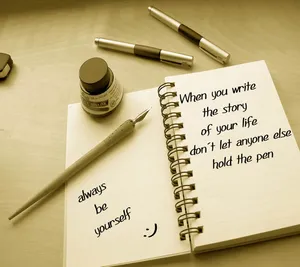 always
be
yourself
:)
When you write
the story
of your life
don't let anyone else
hold the pen